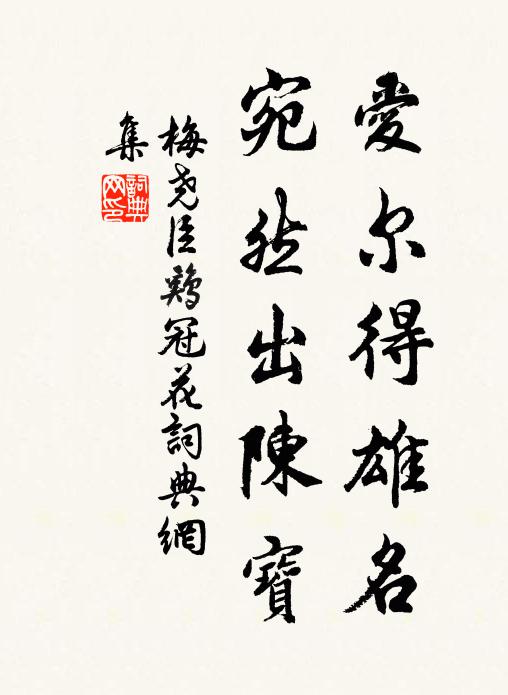 愛尔得雄名
宛然出陳寶
梅尧臣鷄冠花詞典網
集
詞典网印